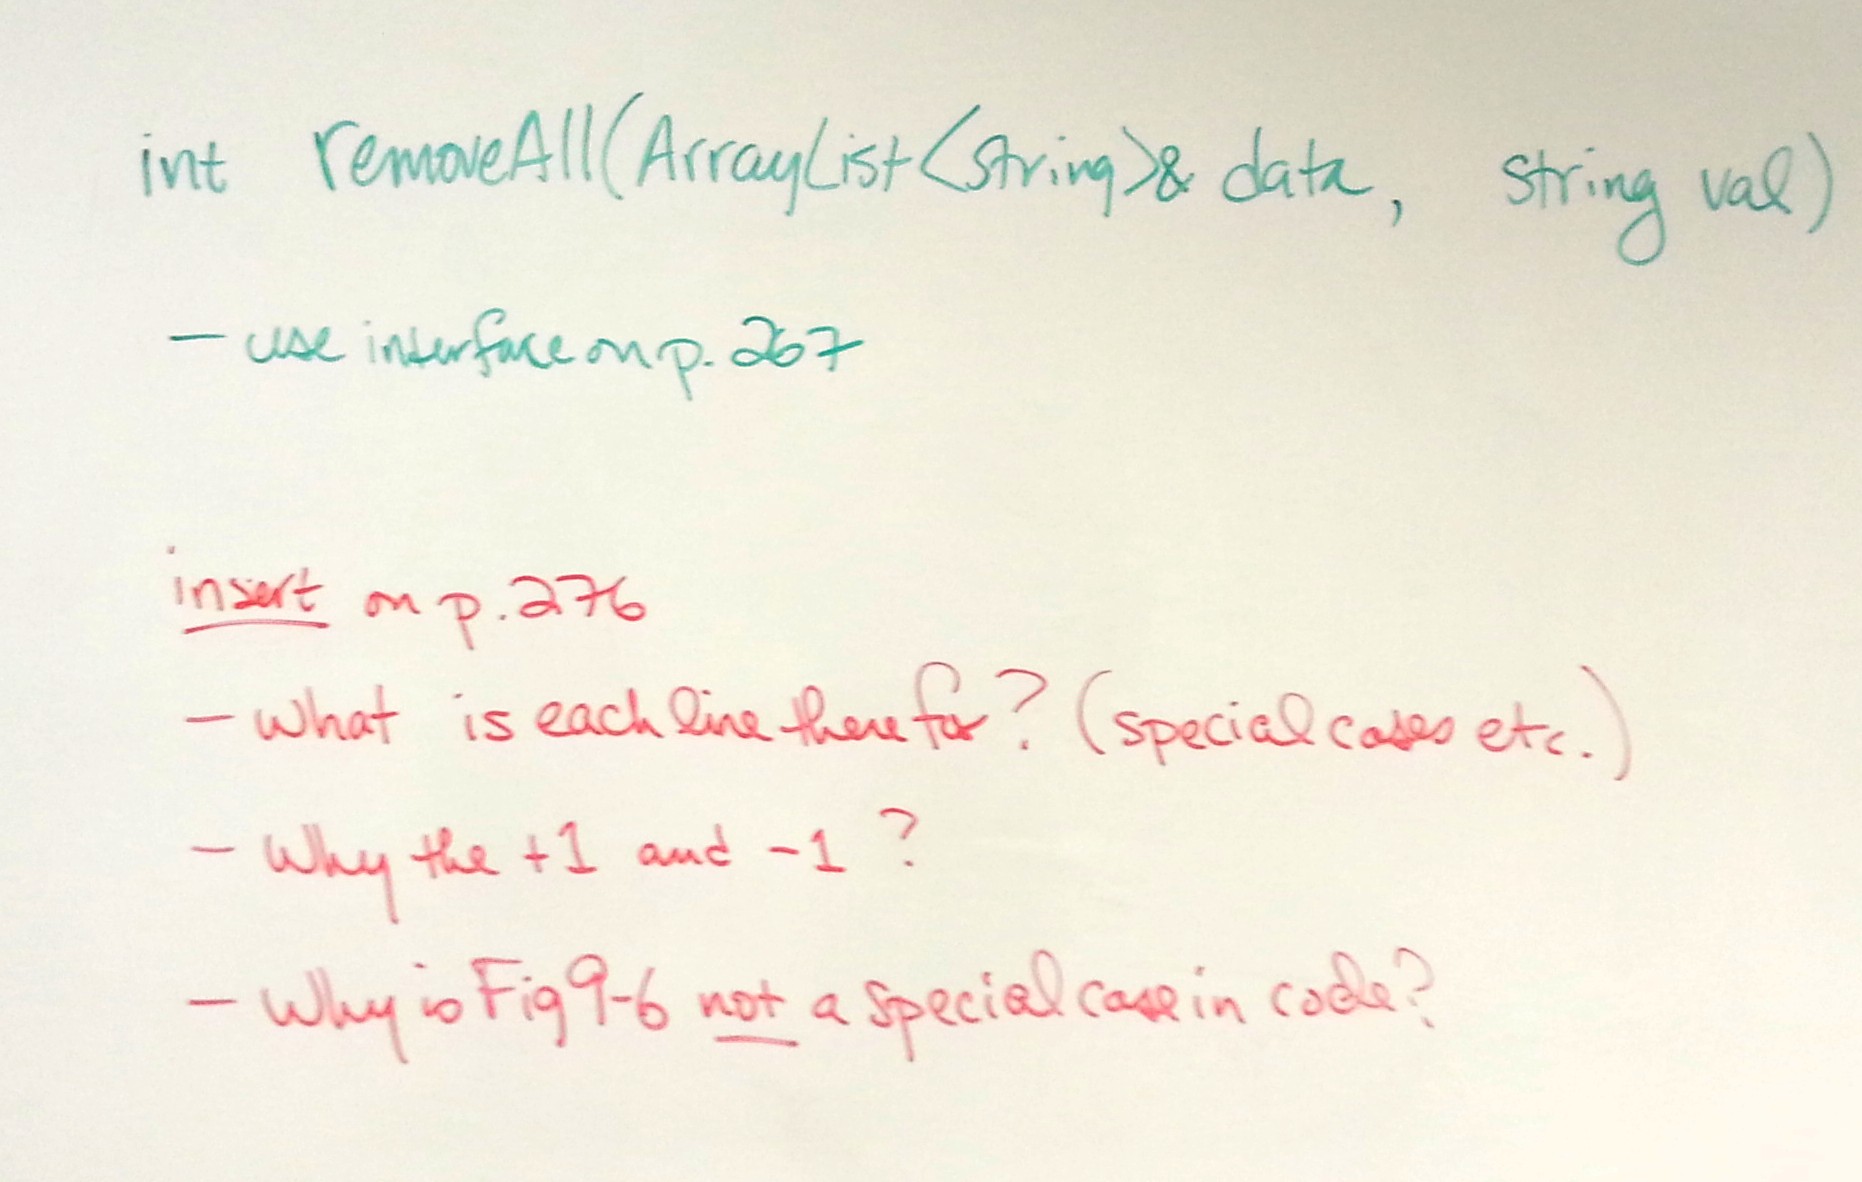 int removeAll(ArrayList<string>& data, string val)
- use interface on p. 267
insert on p. 276
- What is each line there for? (special cases etc.)
- Why the +1 and -1 ?
- Why is Fig 9-6 not a special case in code?